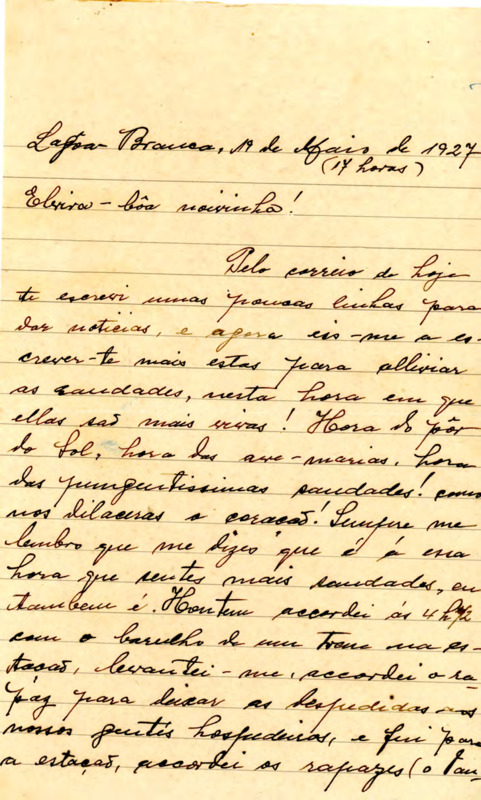 Lagôa-Branca, 19 de Maio de 1927
(17 horas)
Elvira - bôa noivinha!
Pelo correio de hoje
te escrevi umas poucas linhas para
dar noticias, e agora eis-me a es-
crever-te mais estas para alliviar
as saudades, nesta hora em que
ellas saõ mais vivas! Hora do pôr
do Sol, hora das ave-marias, hora
das pungentissimas saudades! como
nos dilaceras o coraçaõ! Sempre me
lembro que me dizes que é á essa
hora que sentes mais saudades, eu
tambem é. Hontem accordei ás 4 h 1/2
com o barulho de um trem na es-
taçaõ, levantei-me, accordei o ra-
páz para deixar as despedidas aos
nossos gentis hospedeiros, e fui para
a estaçaõ, accordei os rapazes (o